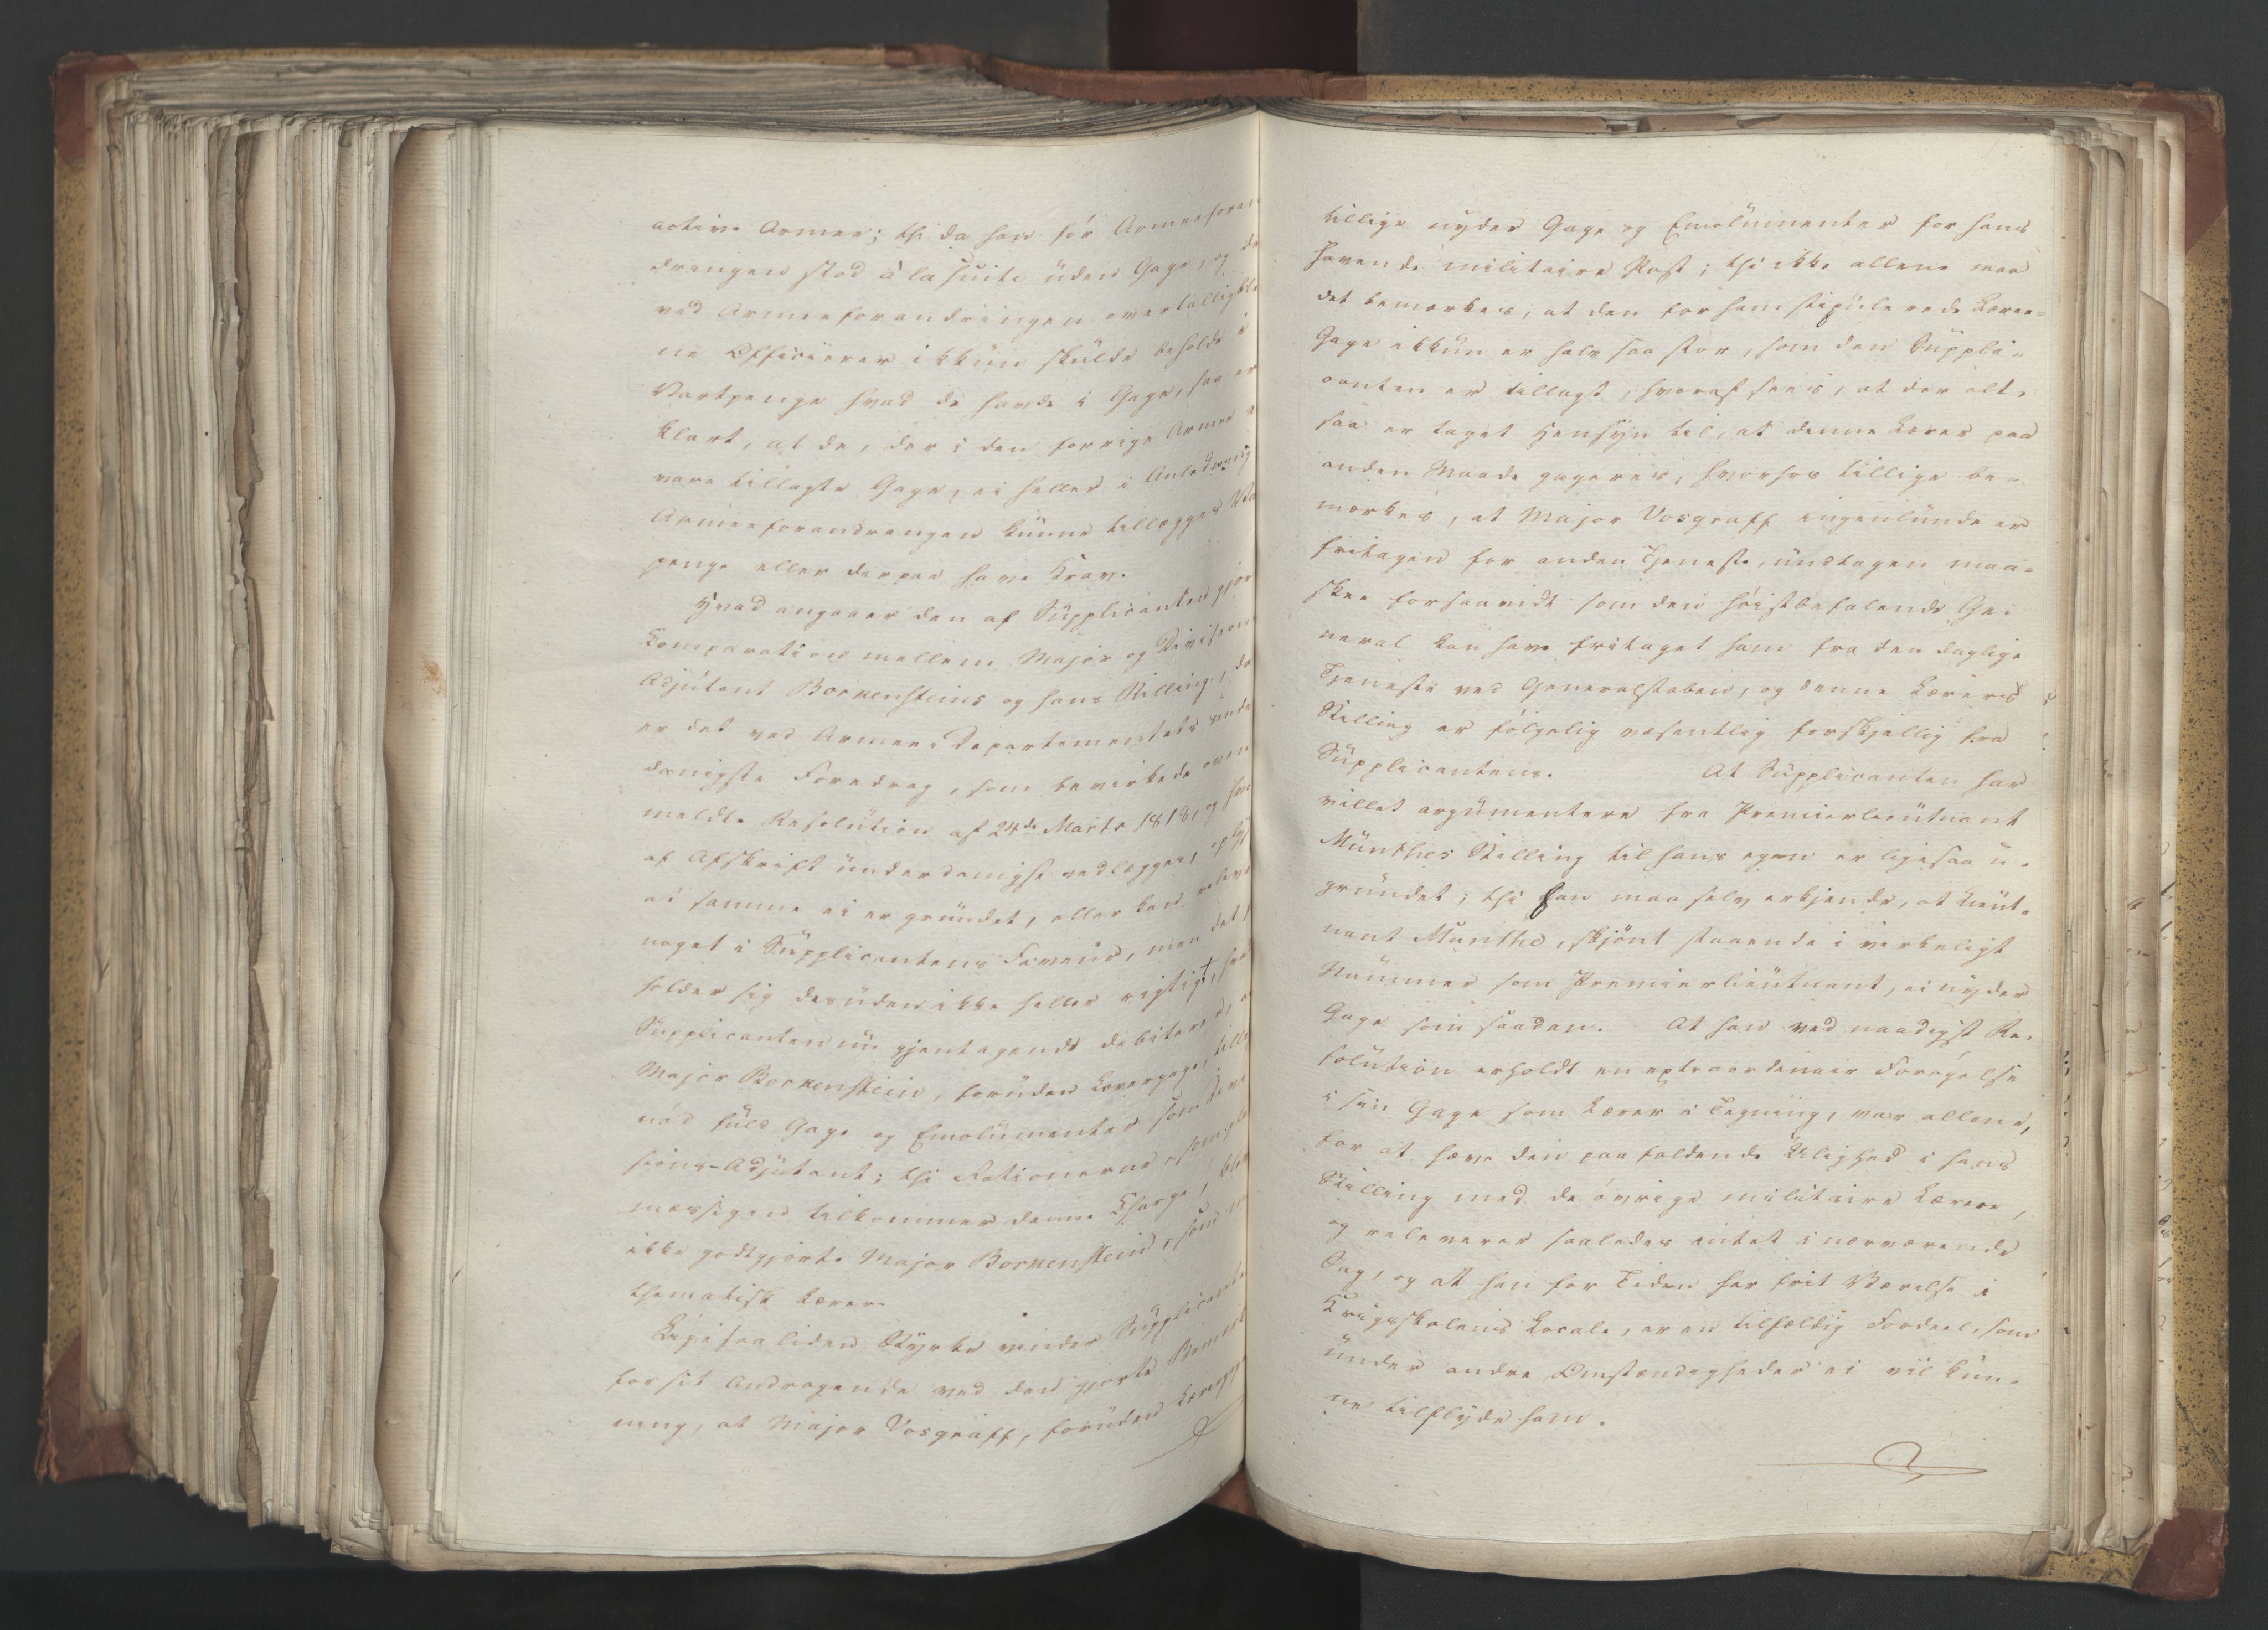 active Armee; thi da han før Armeeforan
dringen stod à la suite uden Gage, og de
ved Armeeforandringen overtallig blev
ne Officierer ikkun skulde beholde i
Vartpenge hvad de havde i Gage, saa er
klart, at de, der i den forrige Armee ei
vare tillagte Gage, ei heller i Anledning
Armeeforandringen kunne tillægges Va
penge eller derpaa have Krav.
Hvad angaaer den af Supplicanten gjor
Komparation mellem Major og Division
Adjutant Borkensteins og hans Stilling, da
er det ved Armee-Departementets unde
danigste Foredrag, som bevirkede oven
meldte Resolution af 24de Marts 1818, og hvor
af Afskrift underdanigst vedlægges, oplyst
at samme ei er grundet, eller kan releve
noget i Supplicantens Faveur, men det for
holder sig desuden ikke heller rigtigt, hvad
Supplicanten nu gjentagende debiterer, at
Major Borkenstein, foruden Lærergage, tillige
nød fuld Gage og Emolumenter som Divi
sions-Adjutant; thi Rationerne, som
mæssigen tilkommer denne Charge, blev
ikke godtgjorte Major Borkenstein, som ma
thematisk Lærer.
Ligesaa liden Styrke vinder Supplicanten
for sit Andragende ved den gjorte Bemærk
ning, at Major Vosgraff, foruden Lærergage
tillige nyder Gage og Emolumenter for hans
havende militaire Post; thi ikke allene maa
det bemærkes, at den for ham stipulerede Lærer-
Gage ikkun er halv saa stor, som den Suppli-
canten er tillagt, hvoraf sees, at der alt-
saa er taget Hensyn til, at denne Lærer paa
anden Maade gageres, hvorhos tillige be-
mærkes, at Major Vosgraff ingenlunde er
fritagen for anden Tjeneste, undtagen maa-
skee forsaavidt som den høistbefalende Ge-
neral kan have fritaget ham fra den daglige
Tjeneste ved Generalstaben, og denne Lærers
Stilling er følgelig væsentlig forskjellig fra
Supplicantens. At Supplicanten har
villet argumentere fra Premierlieutnant
Munthes Stilling til hans egen er ligesaa u-
grundet; thi han maa selv erkjende, at Lieut-
nant Munthe, skjønt staaende i virkeligt
Nummer som Premierlieutnant, ei nyder
Gage som saadan. At han ved naadigst Re-
solution erholdt en extraordinair Forøgelse
i sin Gage som Lærer i Tegning, var allene,
for at hæve den paafaldende Ulighed i hans
Stilling med de øvrige militaire Lærere,
og releverer saaledes intet i nærværende
Sag, og at han for Tiden har frit Værelse i
Krigsskolens Locale, er en tilfældig Fordeel, som
under andre Omstændigheder ei vil kun-
ne tilflyde ham.